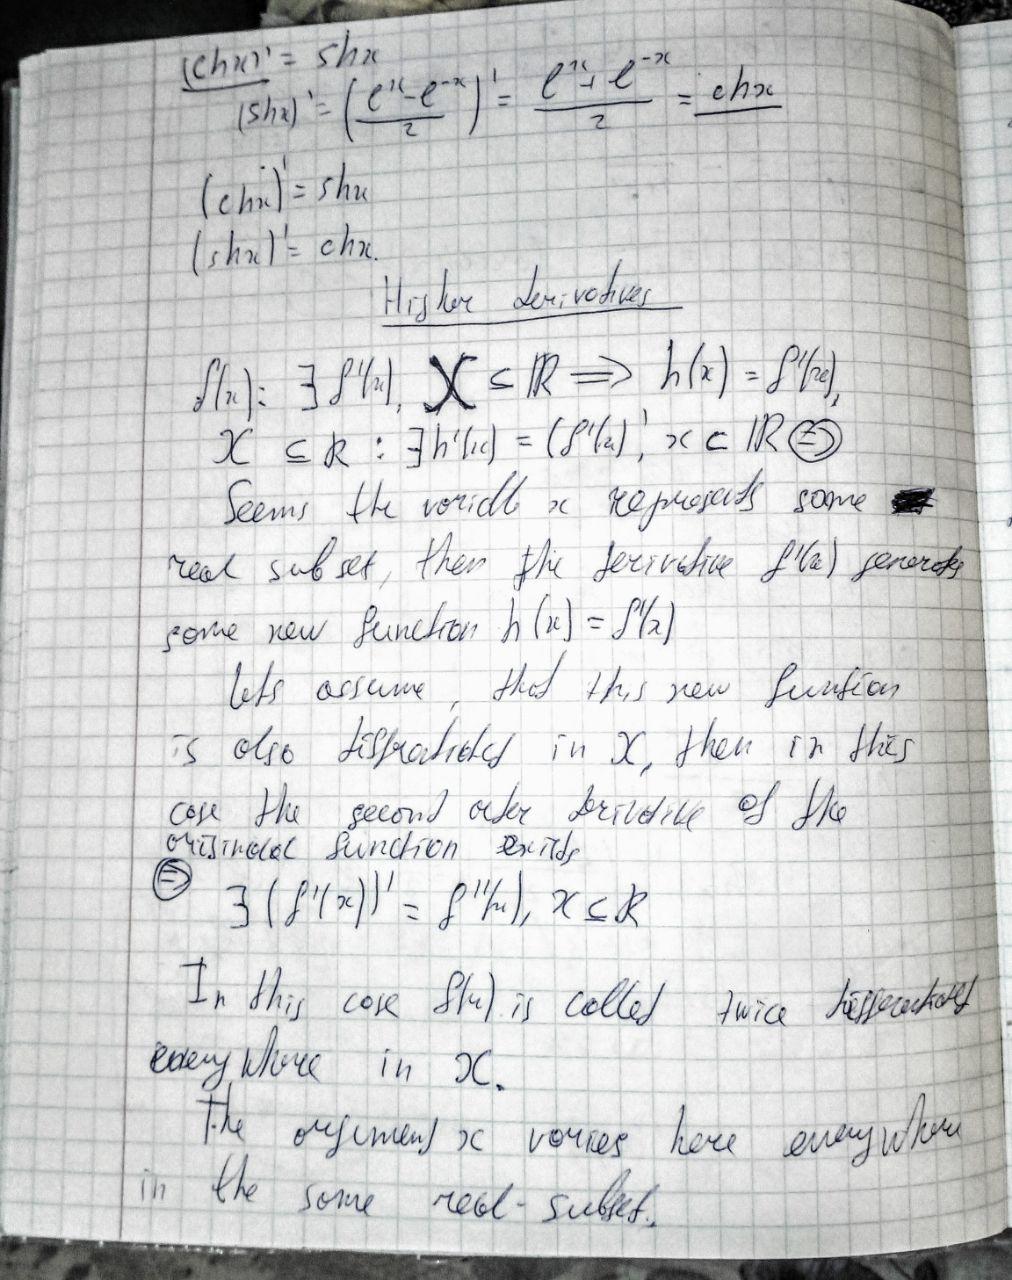 (chx)' = shx
(shx)' = ((e^x - e^-x)/2)' = (e^x + e^-x)/2 = chx
(chx)' = shx
(shx)' = chx.
Higher derivatives
f(x): ∃ f'(x), X ⊆ ℝ ⟹ h(x) = f'(x),
X ⊆ ℝ : ∃ h'(x) = (f'(x))', x ⊂ ℝ ⇒
Seems the variable x represents some
real subset, then the derivative f'(x) generates
some new function h(x) = f'(x)
Lets assume, that this new funtion
is also in X, then in this
case the second order derivative of the
function exists
⇒ ∃ (f'(x))' = f''(x), x ⊆ ℝ
In this case f(x) is called twice
everywhere in X.
The argument x varies here everywhere
in the some real-subset.